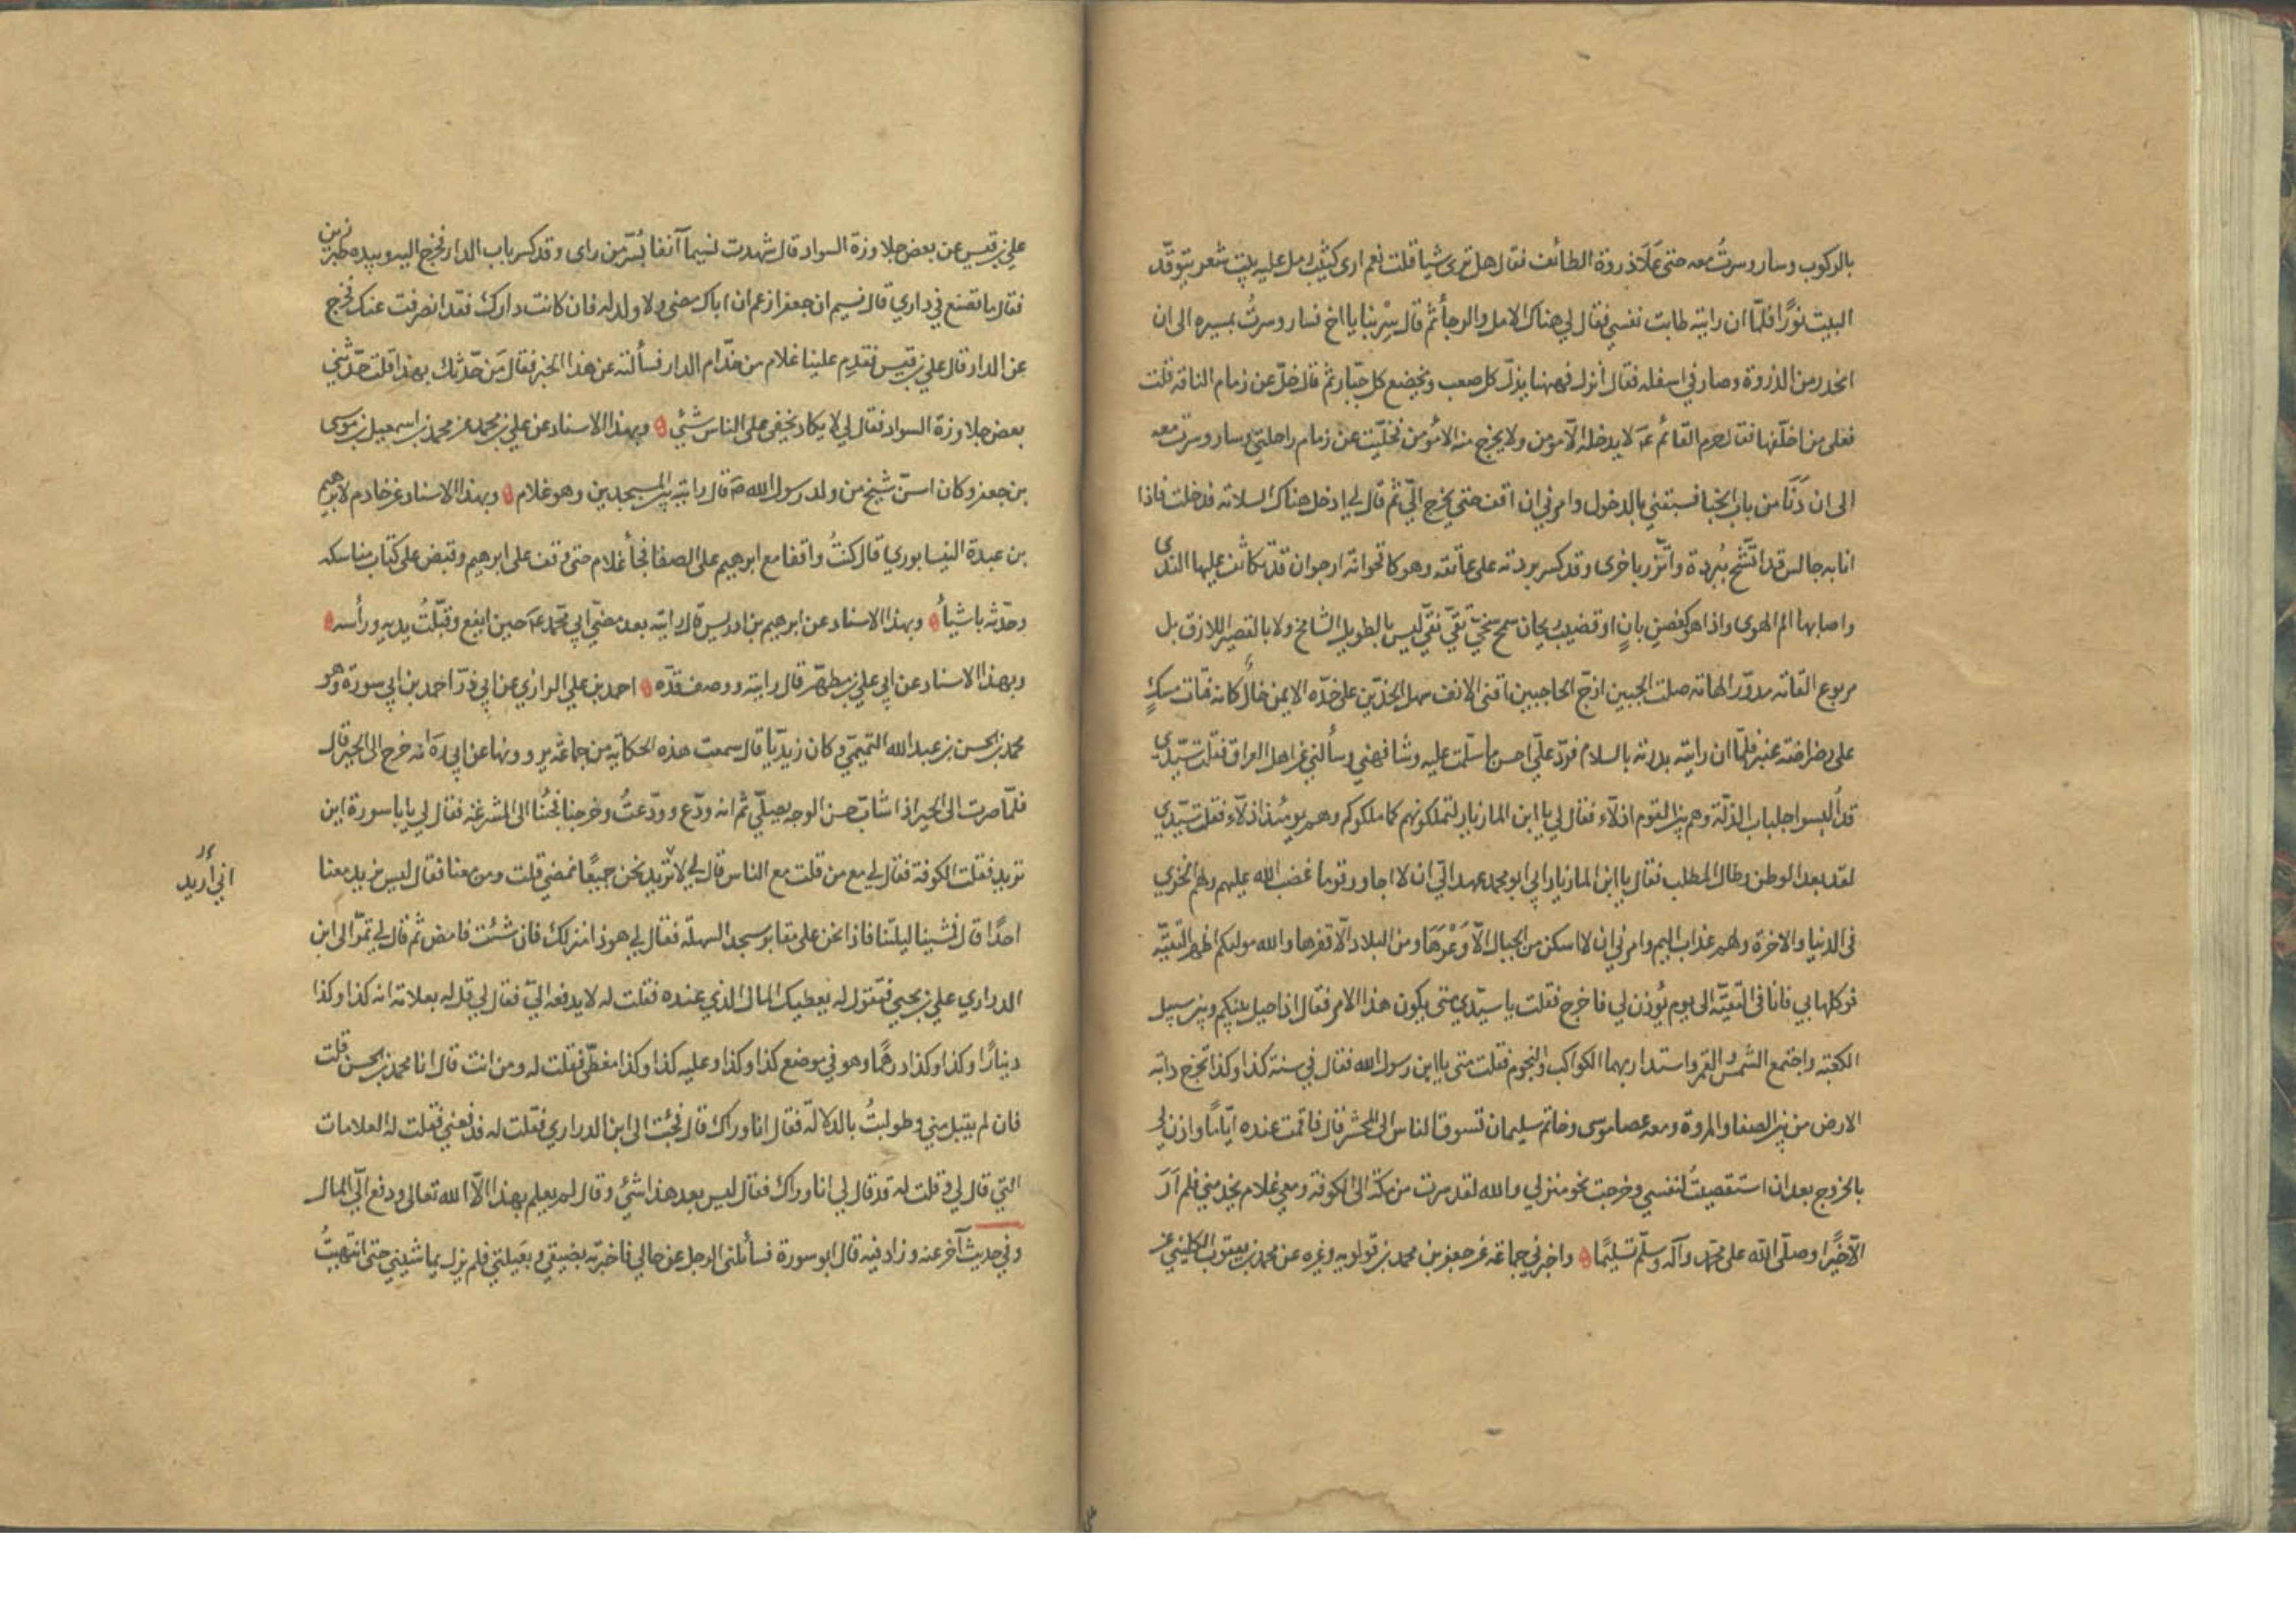 بالركوب وسار وسرتُ معه حتى عَلَا ذروة الطائف فقال هل ترى شيا قلت نعم ارى كثيب رمل عليه بيت شعر يتوقّد
البيت نورًا فلمّا ان رايته طابت نفسي فقال لي هناك الامل والرجأ ثم قال سِرْ بنا يا اخ فسار وسرتُ بمسيره الى ان
انحدر من الذروة وصار في اسفله فقال انزل فههنا يذلّ كل صعب ويخضع كل جبّار ثم قال خلّ عن زمام الناقه قلت
فعلى من اخلّفها فقال حرم القائم عـ لا يدخله الّا مؤمن ولا يخرج منه الا مؤمن فخلّيت عن زمام راحلتي وسار وسرت معه
الى ان دَنَا من باب الخبا فسبقني بالدخول وامرني ان اقف حتى يخرج اليّ ثم قال لي ادخل هناك السلامة فدخلت فاذا
انا به جالس قد اتّشح ببُردة واتّزر باخرى وقد كسر بردته على عاتقه وهو كاقحوانة ارجوان قد تكاثف عليها الندى
واصابها الم الهوى واذا هو كغصن بانٍ او قضيب ريحان سمح سخيّ تقيّ نقيّ ليس بالطويل الشامخ ولا بالقصير اللازق بل
مربوع القامة مدوّر الهامة صلت الجبين ازجّ الحاجبين اقنى الانف سهل الخدّين على خدّه الايمن خالٌ كانه فتات مسكٍ
على رضراضة عنبر فلمّا ان رايته بدرته بالسلام فردّ عليّ احسن ما سلّمت عليه وشافهني وسألني عن اهل العراق فقلت سيّدي
قد أُلبسوا جلباب الذلّة وهم بين القوم اذلّاء فقال لي يا ابن المازيار لتملكونهم كما ملكوكم وهم يومئذ اذلّاء فقلت سيّدي
لقد بعد الوطن وطال المطلب فقال يا ابن المازيار ابي ابو محمد عهد اليّ ان لا اجاور قوما غضب الله عليهم ولهم الخزي
فى الدنيا والاخرة ولهم عذاب اليم وامرني ان لا اسكن من الجبال الّا وَعْرَهَا ومن البلاد الّا قفرها والله مولاكم اظهر التقيّة
فوكلها بي فانا في التقيّة الى يوم يُؤذن لي فاخرج فقلت يا سيّدي متى يكون هذا الامر فقال اذا حيل بينكم وبين سبيل
الكعبة واجتمع الشمس والقمر واستدار بهما الكواكب والنجوم فقلت متى يا ابن رسول الله فقال في سنة كذا وكذا تخرج دابة
الارض من بين الصفا والمروة ومعه عصا موسى وخاتم سليمان تسوق الناس الى المحشر قال فاقمت عنده ايّاما واذن لي
بالخروج بعد ان استقصيتُ لنفسي وخرجت نحو منزلي والله لقد سرت من مكة الى الكوفة ومعي غلام يخدمني فلم اَرَ
الّا خيرًا وصلّى الله على محمّد وآله وسلّم تسليمًا واخبرني جماعة عن جعفر بن محمد بن قولويه وغيره عن محمد بن يعقوب الكليني عن
علي بن قيس عن بعض جلاوزة السواد قال شهدت نسيما آنفا بسُرّ من راى وقد كسر باب الدار فخرج اليه وبيده طبرزين
فقال ما تصنع في داري قال نسيم ان جعفرا زعم ان اباك مضى ولا ولد له فان كانت دارك فقد انصرفت عنك فخرج
عن الدار قال علي بن قيس فقدم علينا غلام من خدّام الدار فسألته عن هذا الخبر فقال مَن حَدّثك بهذا قلت حدّثني
بعض جلاوزة السواد فقال لي لا يكاد يخفى على الناس شئي وبهذا الاسناد عن علي بن محمد عن محمد بن اسمعيل بن موسى
بن جعفر وكان اسنّ شيخ من ولد رسول الله صـ قال رايته بين المسجدين وهو غلام وبهذا الاسناد عن خادم لابرهيم
بن عبدة النيسابوري قال كنتُ واقفا مع ابرهيم على الصفا فجأ غلام حتى وقف على ابرهيم وقبض على كتاب مناسكه
وحدّثه باشيأ وبهذا الاسناد عن ابرهيم بن ادريس قال رايته بعد مضيّ ابي محمّد عـ حين ايفع وقبّلتُ يديه ورأسه
وبهذا الاسناد عن ابي علي بن مطهّر قال رايته ووصف قدّه احمد بن علي الرازي عن ابي ذرّ احمد بن ابي سورة وهو
محمد بن الحسن بن عبد الله التميمي وكان زيديّا قال سمعت هذه الحكاية من جماعة يروونها عن ابي ره انه خرج الى الحير قال
فلمّا صرت الى الحير اذا شابّ حسن الوجه يصلّي ثم انه ودّع وودّعتُ وخرجنا فجئنا الى المشرعة فقال لي يا باسورة اين
تريد فقلت الكوفة فقال لي مع من قلت مع الناس قال لي لا تريد نحن جميعًا نمضي قلت ومن معنا فقال ليس نريد معنا
احدًا قال فمشينا ليلتنا فاذا نحن على مقابر مسجد السهلة فقال لي هو ذا منزلك فان شئت فامض ثم قال لي تمرّ الى ابن
الدراري علي بن يحيى فتقول له يعطيك المال الذي عنده فقلت له لا يدفعه اليّ فقال لي قل له بعلامة انه كذا وكذا
دينارًا وكذا وكذا درهمًا وهو في موضع كذا وكذا وعليه كذا وكذا مغطّى فقلت له ومن انت قال انا محمد بن الحسن قلت
فان لم يقبل مني وطولبتُ بالدلالة فقال انا وراك قال فجئت الى ابن الدراري فقلت له فدفعني فقلت له العلامات
التي قال لي وقلت له قد قال لي انا وراك فقال ليس بعد هذا شئ وقال لم يعلم بهذا الّا الله تعالى ودفع اليّ المال
وفي حديث آخر عنه وزاد فيه قال ابو سورة فسألني الرجل عن حالي فاخبرته بضيقي وبعيلتي فلم يزل يماشيني حتى انتهيتُ
اني أريد